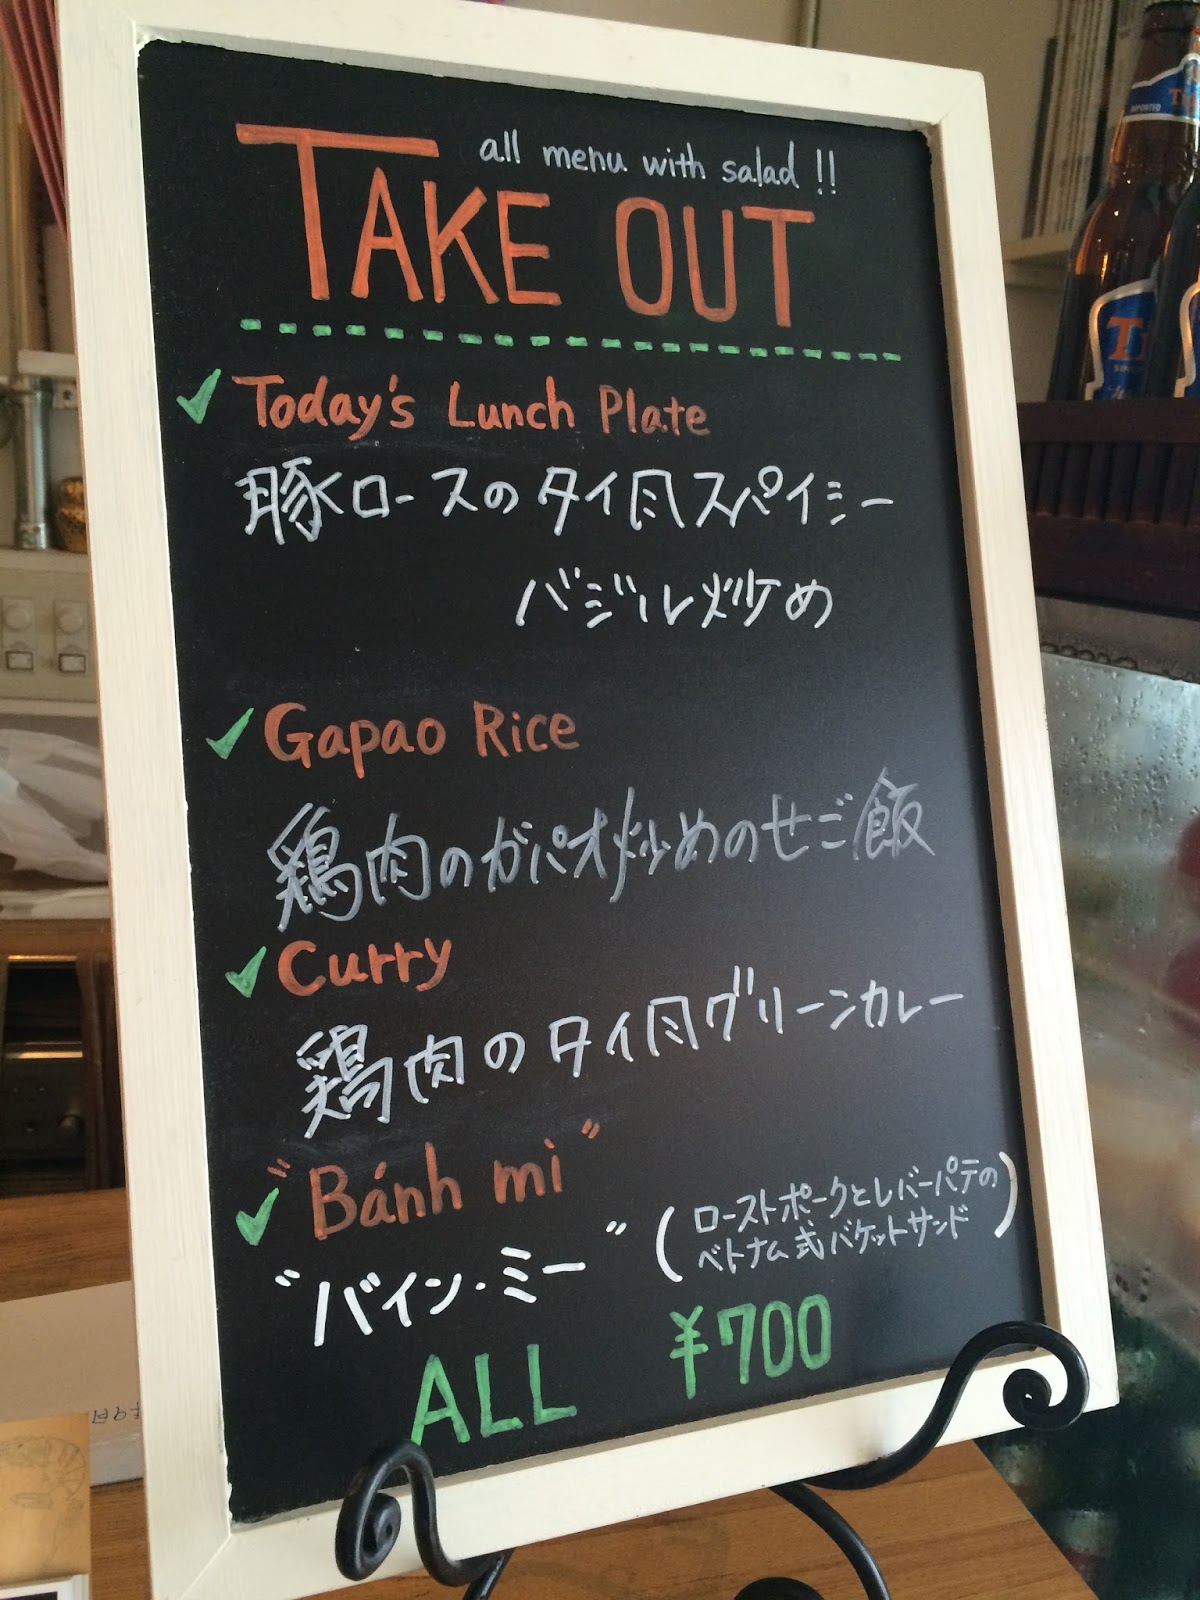 all menu with salad !!
TAKE OUT
Today's Lunch Plate
豚ロースのタイ風スパイシー
バジル炒め
Gapao Rice
鶏肉のガパオ炒めのせご飯
Curry
鶏肉のタイ風グリーンカレー
"Bánh mì"
"バイン・ミー" (ローストポークとレバーパテの
ベトナム式バケットサンド)
ALL ¥700
IMPORTED